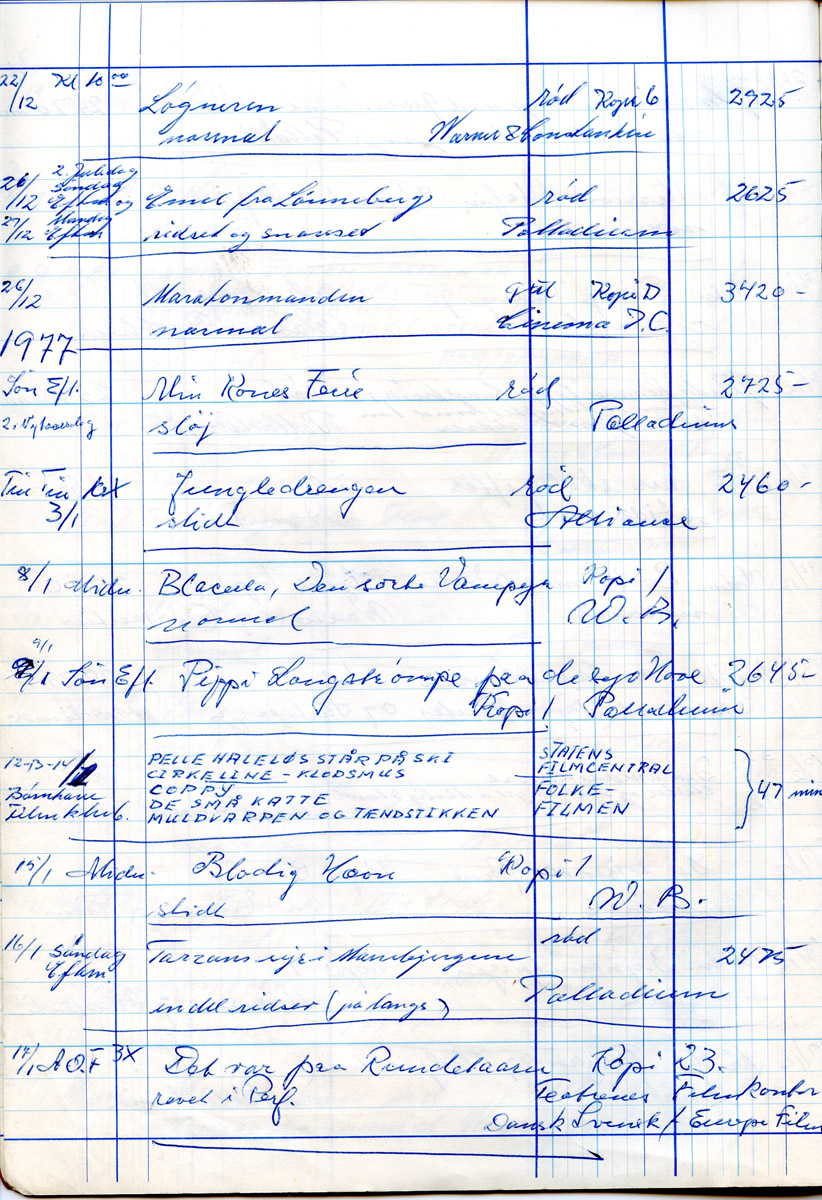 22/12 Kl 10 00
Løgneren rød Kopi 6 2925
normal Warner & Constantin
26/12 2. Juledag Søndag Eftm og Emil fra Lønneberg rød 2625
27/12 Mandag Eftm ridset og snavset Palladium
26/12 Maratonmanden gul Kopi D 3420-
normal Cinema I.C.
1977
Søn Eft. Min Kones Ferie rød 2725-
2. Nytaarsdag sløj Palladium
3/1 Jungledrengen rød 2460-
slidt Alliance
8/1 Midn. Blacula, Den sorte Vampyr Kopi 1
normal W. B.
9/1
9/1 Søn Eft. Pippi Langstrømpe paa de syv Have 2645-
Kopi 1 Palladium
12-13-14/1 PELLE HALELØS STÅR PÅ SKI STATENS
CIRKELINE - KLODSMUS FILMCENTRAL
Børnhave COPPY FOLKE- 47 min
Filmklub. DE SMÅ KATTE FILMEN
MULDVARPEN OG TÆNDSTIKKEN
15/1 Midn. Blodig Hævn Kopi 1
slidt W. B.
16/1 Søndag Eftm. Tarzans i rød 2475
en del ridser (på langs) Palladium
17/1 A O.F 3X Det var paa Rundetaarn Kopi 23.
revet i Perf. Teatrenes Filmkontor
Dansk Svensk / Europa Film